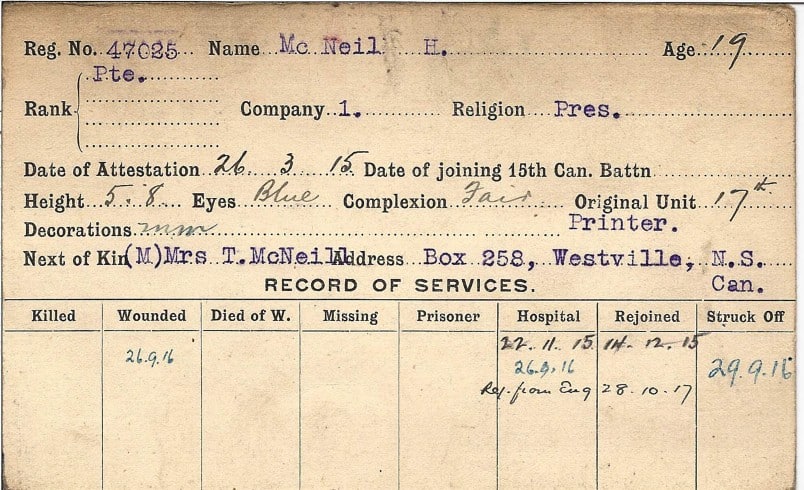 Reg. No. 47025 Name Mc Neil H. Age 19
Pte.
Rank Company 1. Religion Pres.
Date of Attestation 26 3 15 Date of joining 15th Can. Battn
Height 5.8 Eyes Blue Complexion Fair Original Unit 17th
Decorations mm Printer.
Next of Kin (M)Mrs T.McNeill Address Box 258, Westville, N.S.
RECORD OF SERVICES. Can.
Killed Wounded Died of W. Missing Prisoner Hospital Rejoined Struck Off
22.11.15 14.12.15
26.9.16 26.9.16 29.9.16
Rej. from Eng 28.10.17